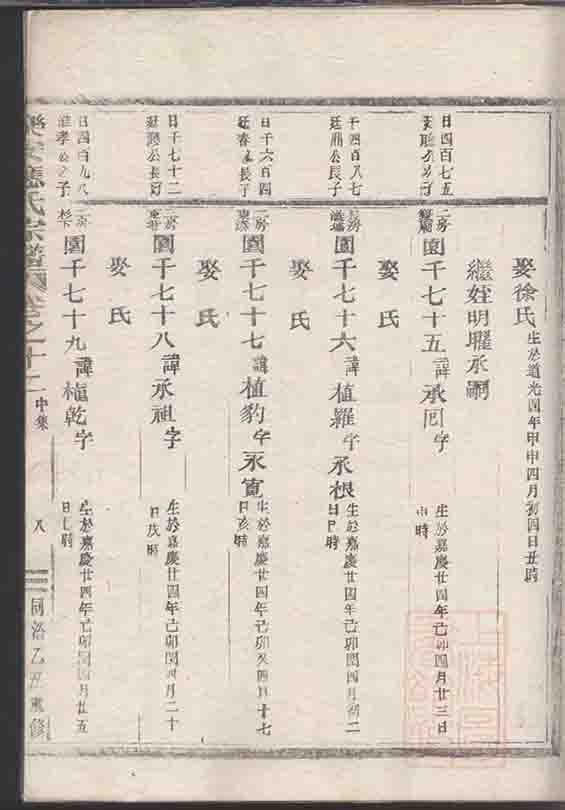 娶徐氏 生於道光四年甲申四月初四日丑時
繼姪明耀承嗣
日四百七五
二房
園千七十五 諱承回字 生於嘉慶廿四年己卯四月廿三日
申時
娶氏
千四百八七
廷鼎公長子
長房
園千七十六 諱植羅字承根 生於嘉慶廿四年己卯閏四月初二
日巳時
娶氏
日千六百四
廷春公長子
二房
園千七十七 諱植豹字永寬 生於嘉慶廿四年己卯四月十七
日亥時
娶氏
日千七十二
公長子
二房
園千七十八 諱承祖字 生於嘉慶廿四年己卯閏四月二十
日戌時
娶氏
日四百九八
孝公之子
二房
園千七十九 諱植乾字 生於嘉慶廿四年己卯閏四月廿五
日巳時
應氏宗譜 卷之十二 中集 八 同治乙丑重修